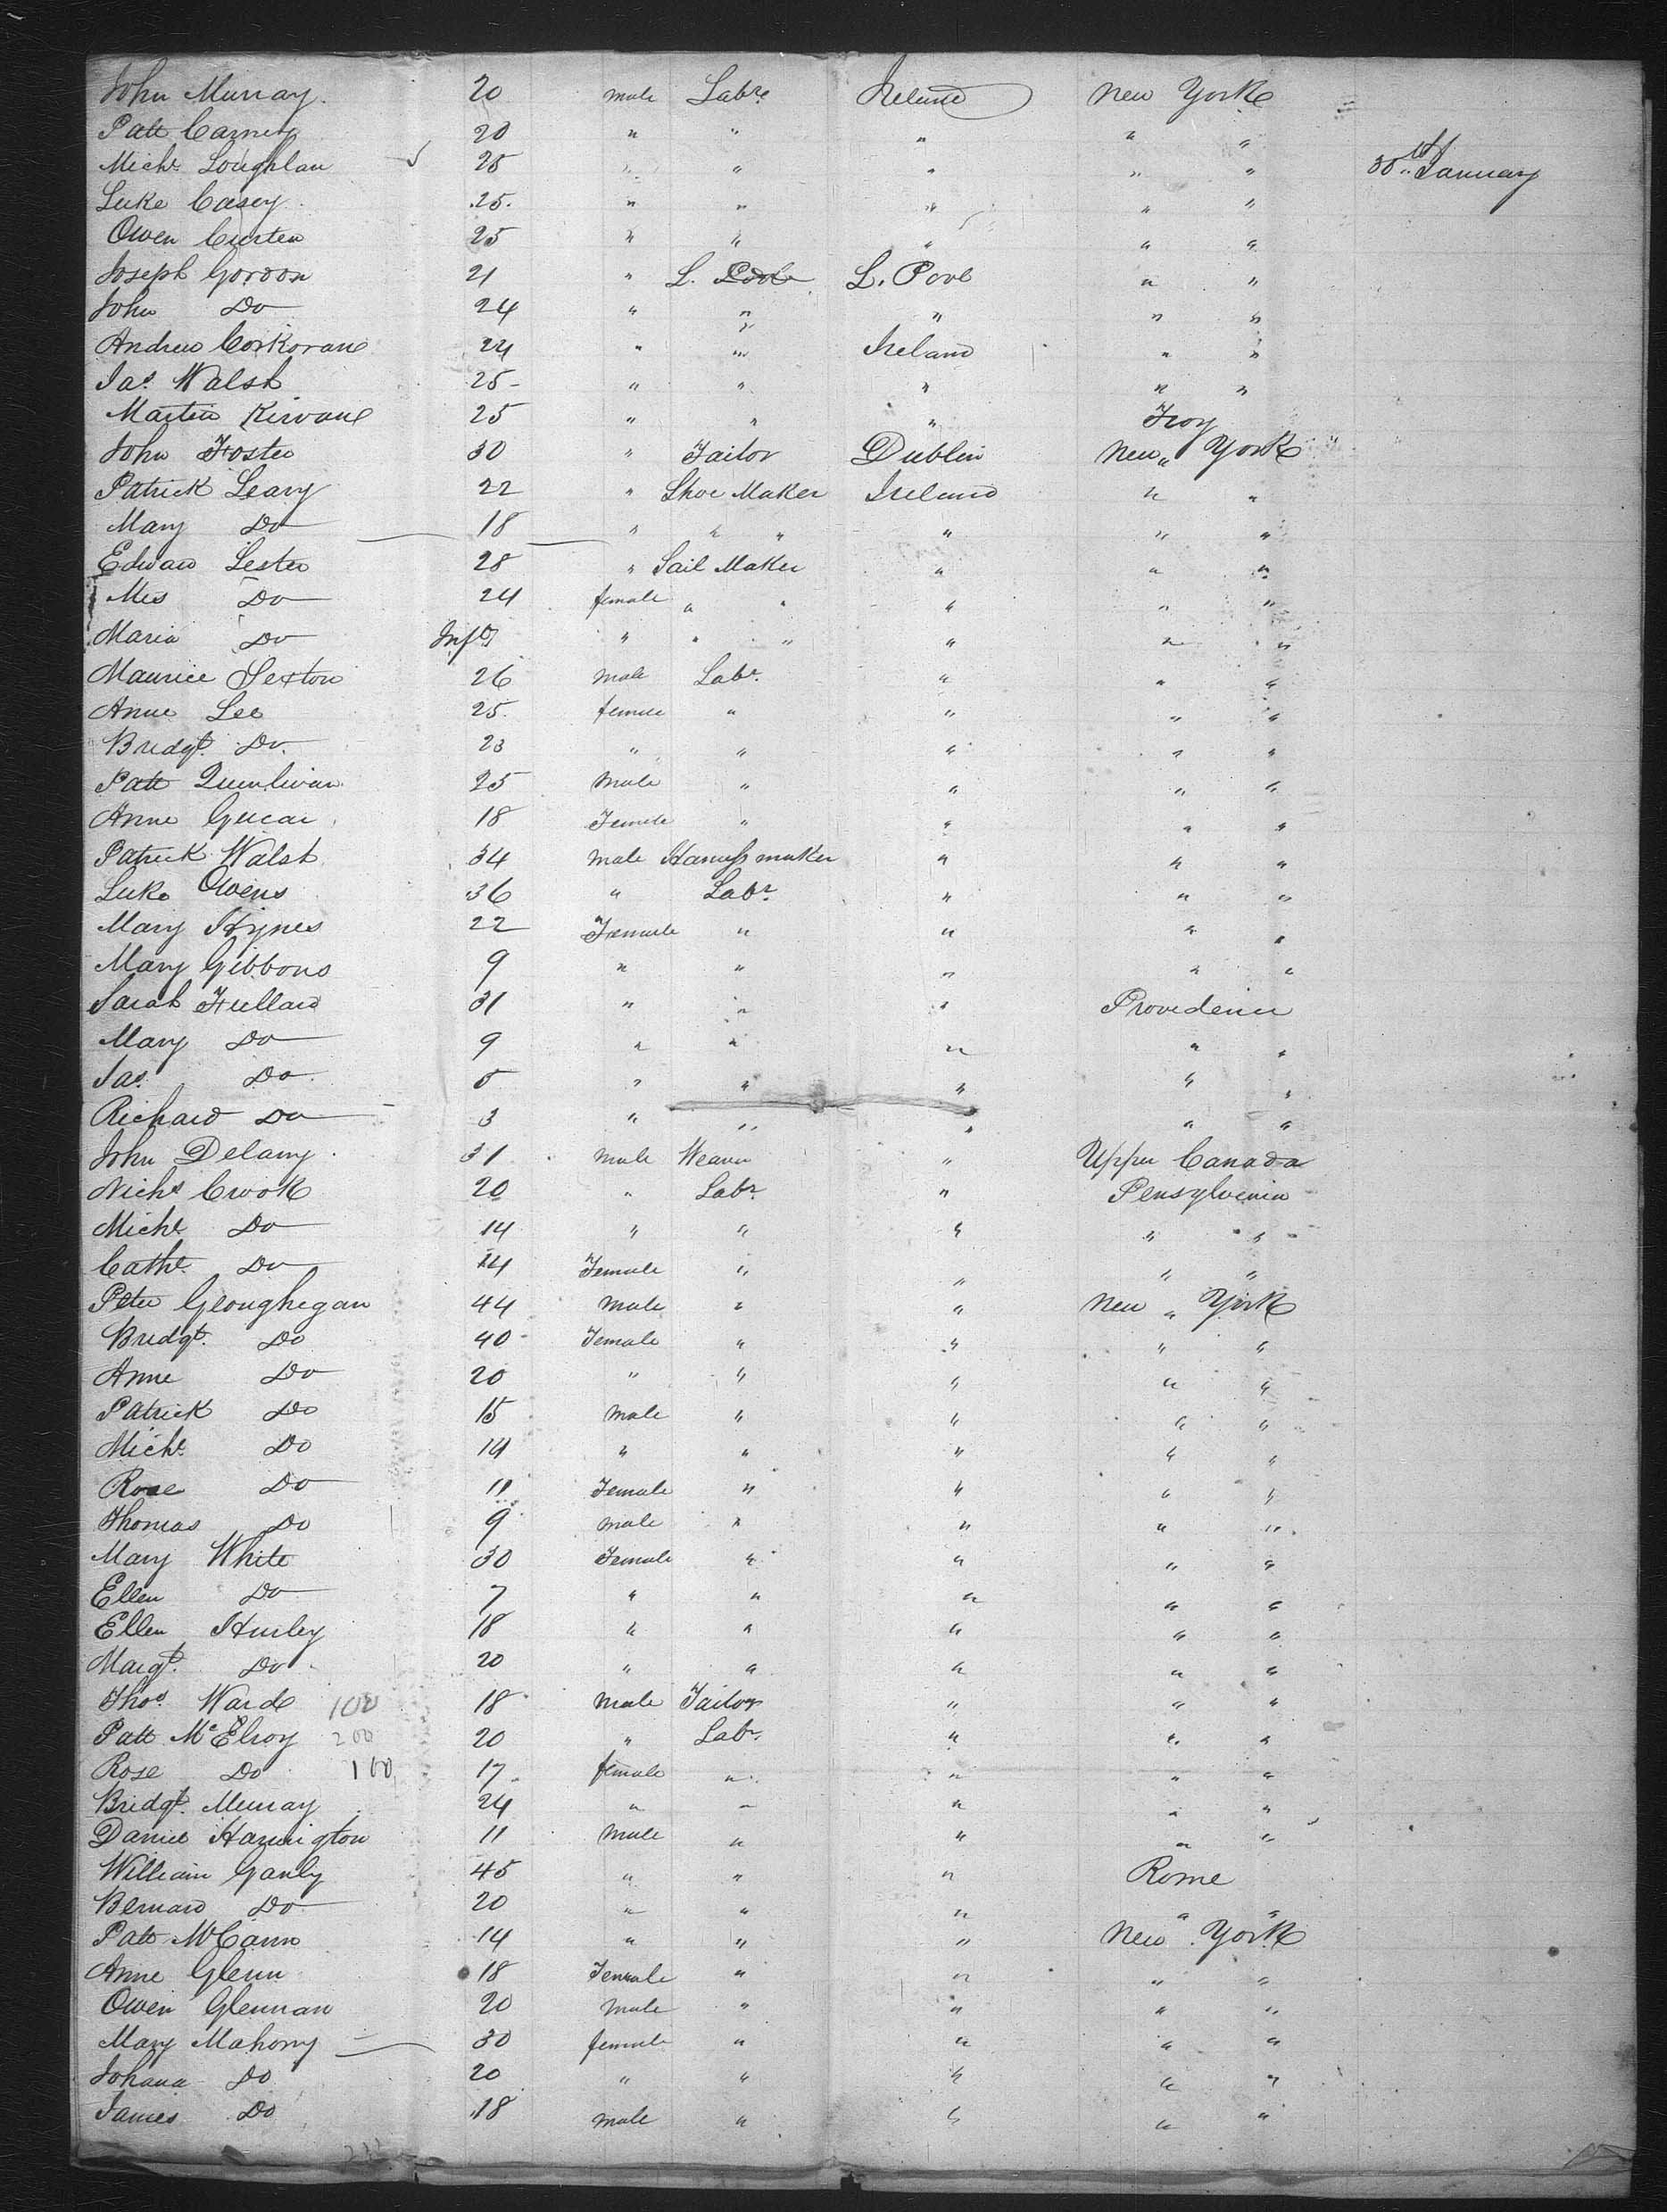 John Murray. 20 male Labr. Ireland New York
Patt Carney 20 " " " " "
Michl. Loughlan 25 " " " " " 30th January
Luke Casey 25. " " " " "
Owen Curten 25 " " " " "
Joseph Gordon 21 " L. Pool L. Pool " "
John Do 24 " " " " "
Andrew Corkorane 24 " " Ireland " "
Jas. Walsh 25 " " " " "
Martin Kirvane 25 " " " Troy
John Foster 30 " Tailor Dublin New " York
Patrick Leary 22 " Shoe Maker Ireland " "
Mary Do 18 " " " " " "
Edward Lester 28 " Sail Maker " " "
Mrs Do 24 female " " " " "
Maria Do Inft " " " " " "
Maurice Sexton 26 male Labr. " " "
Anne Lee 25. female " " " "
Bridgt. Do. 23 " " " " "
Patt Quinlivan 25 Male " " " "
Anne 18 Female " " " "
Patrick Walsh 34 male Harness maker " " "
Luke Owens 36 " Labr. " " "
Mary Hynes 22 Female " " " "
Mary Gibbons 9 " " " " "
Sarah Fullard 31 " " " Providence
Mary Do 9 " " " " "
Jas. Do 5 " " " " "
Richard Do 3 " " " " "
John Delany. 31 male Weaver " Upper Canada
Nichs Crook 20 " Labr. " Pensylvenia
Michl. Do 14 " " " " "
Cathe. Do 14 Female " " " "
Peter Geoughegan 44 male " " New " York
Bridgt. Do 40 Female " " " "
Anne Do 20 " " " " "
Patrick Do 15 male " " " "
Michl. Do 14 " " " " "
Rose Do 11 Female " " " "
Thomas Do 9 male " " " "
Mary White 30 Female " " " "
Ellen Do 7 " " " " "
Ellen Hurley 18 " " " " "
Margt. Do 20 " " " " "
Thos. Ward 100 18 male Tailor " " "
Patt McElroy 200 20 " Labr. " " "
Rose Do 100 17 female " " " "
Bridgt. Murray 24 " " " " "
Daniel Harrington 11 Male " " " "
William Ganly 45 " " " Rome
Bernard Do 20 " " " " "
Patt McCann 14 " " " New York
Anne Glenn 18 Female " " " "
Owen Glennan 20 Male " " " "
Mary Mahony 30 female " " " "
Johana Do 20 " " " " "
James Do 18 male " " " "